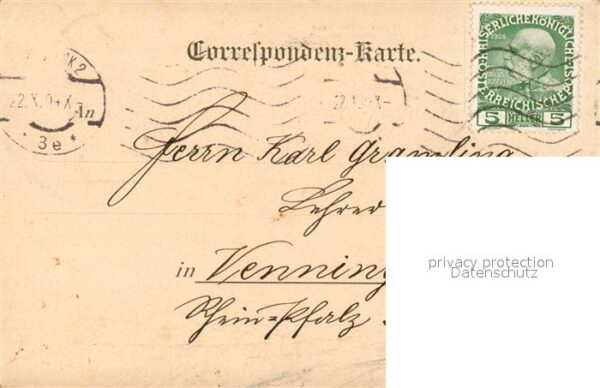 Correspondenz-Karte.
K.K. ÖSTERREICHISCHE POST
1908
5 HELLER 5
22.X.0 -X-
22.X. -X-
3e *
An
Herrn Karl Gramling
Lehrer
in Venningen
Rhein-Pfalz.
privacy protection
Datenschutz